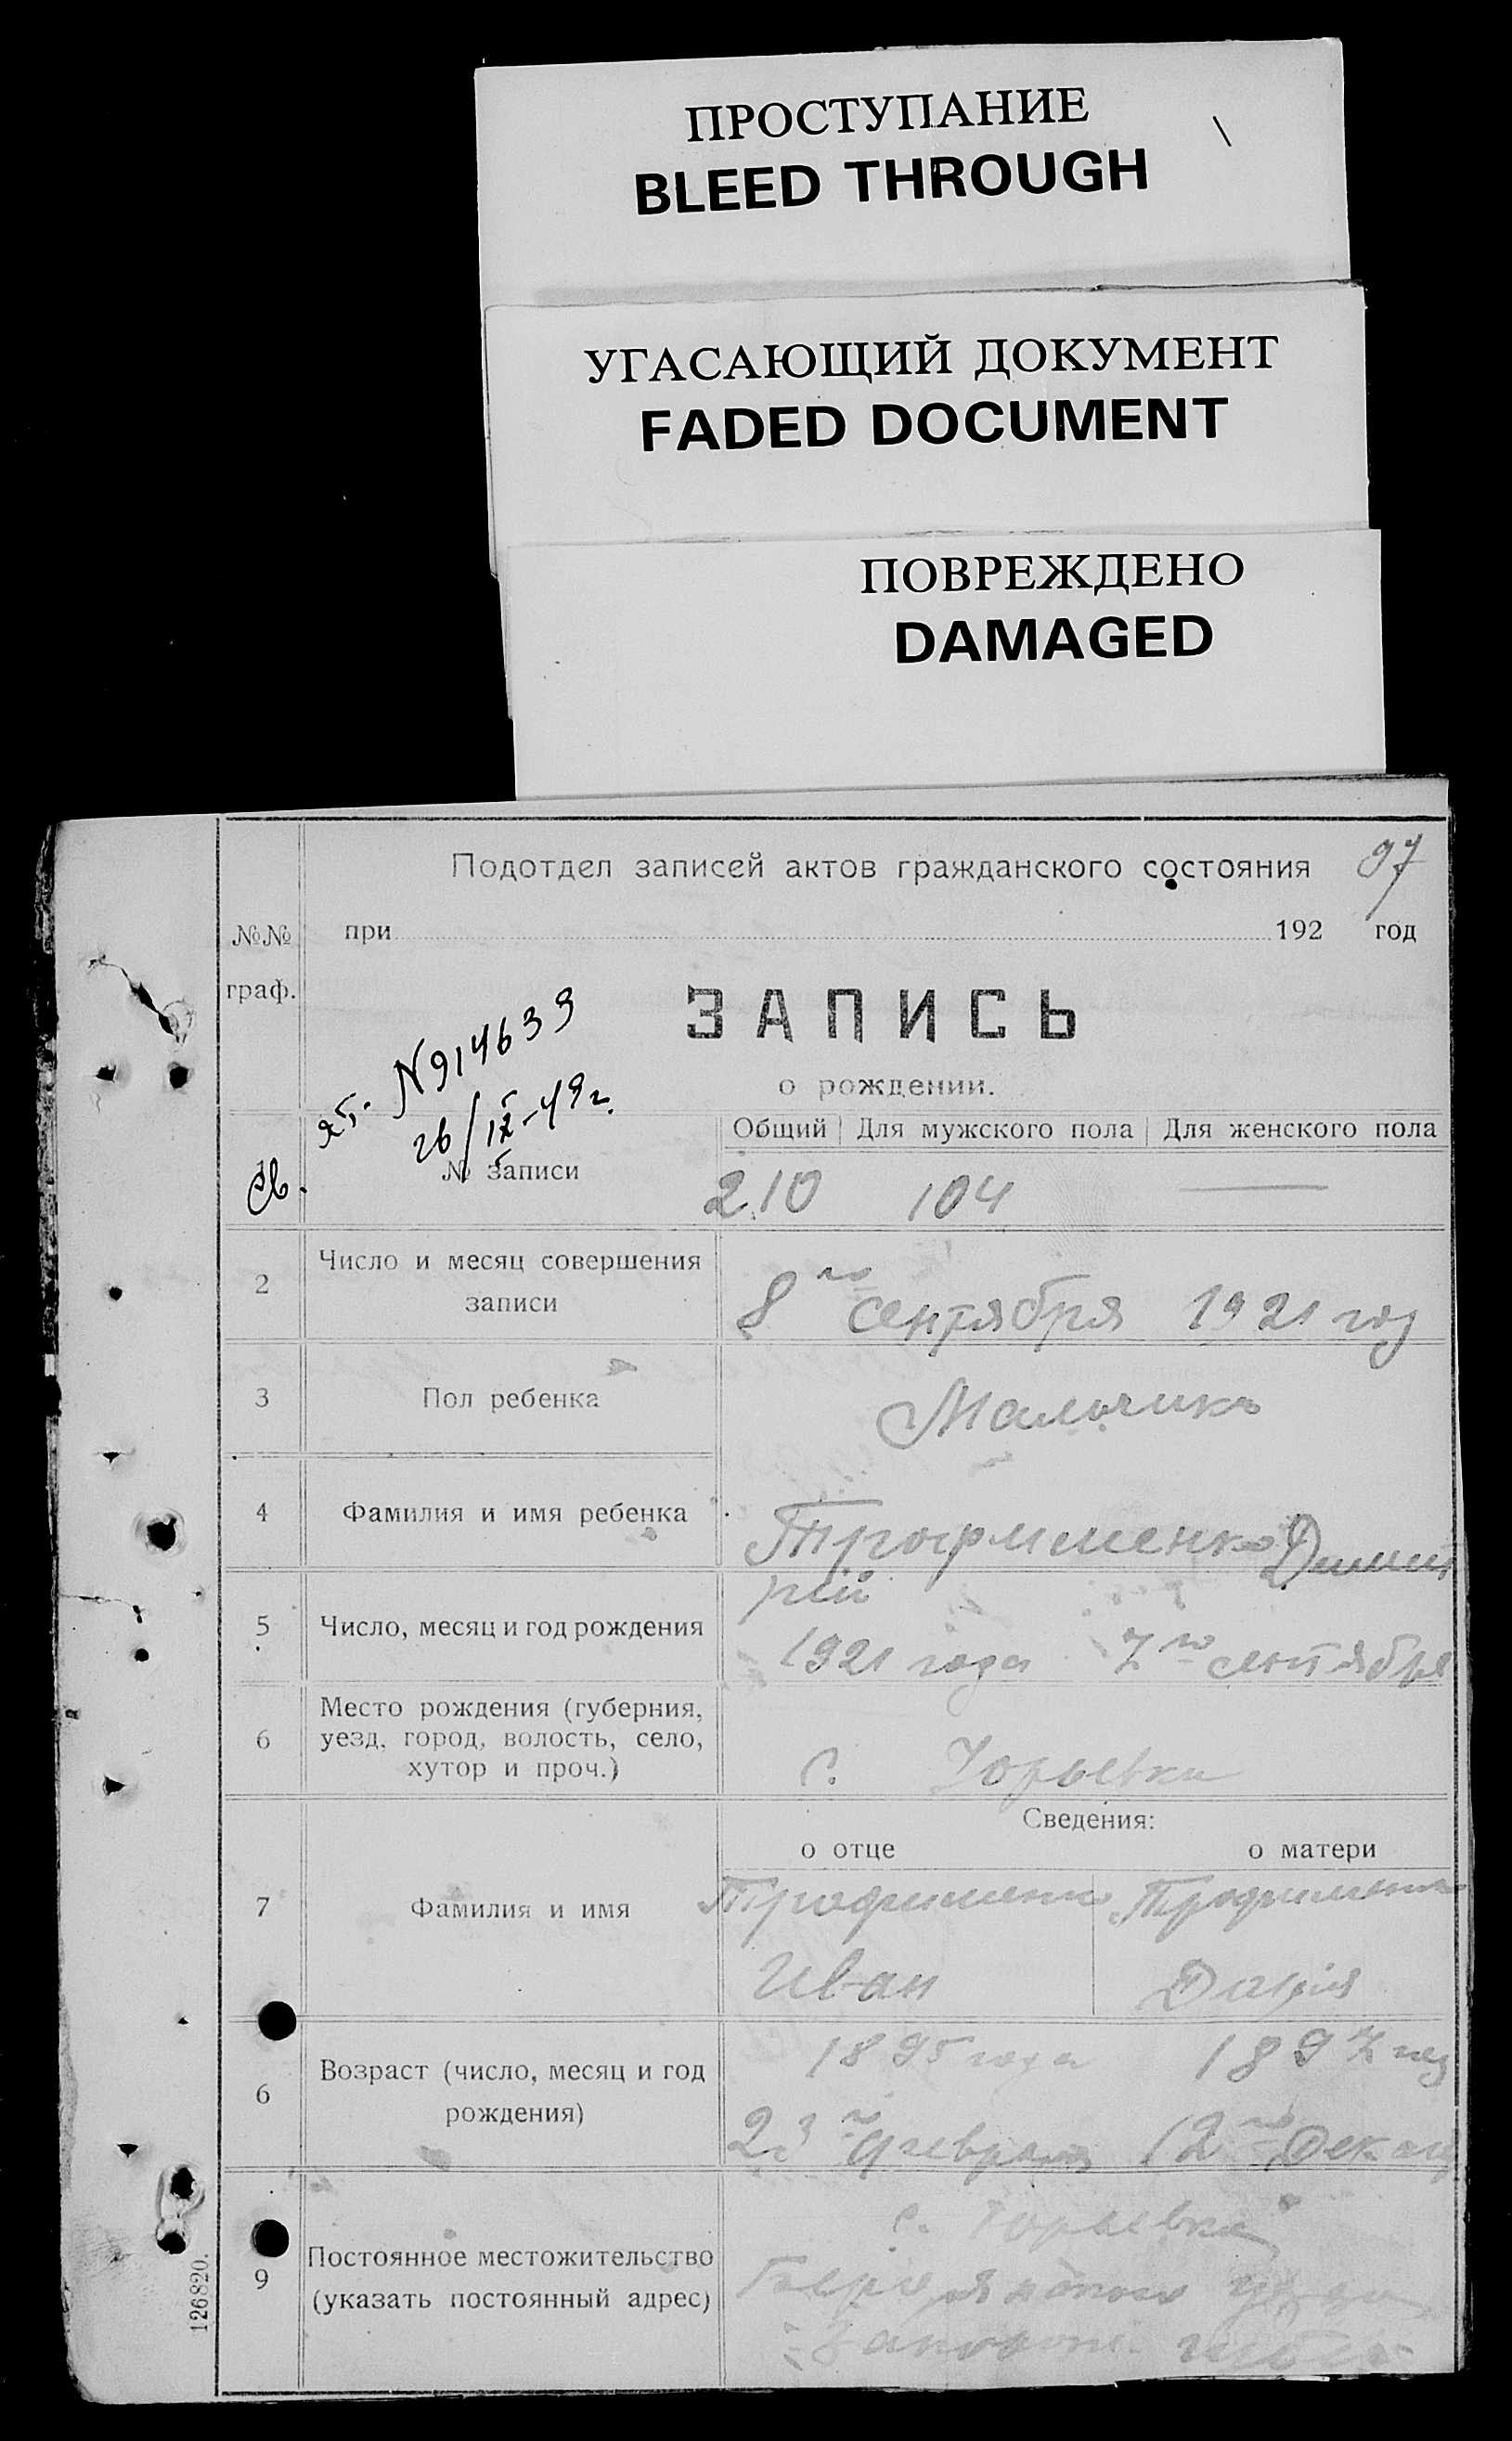 ПРОСТУПАНИЕ
BLEED THROUGH
УГАСАЮЩИЙ ДОКУМЕНТ
FADED DOCUMENT
ПОВРЕЖДЕНО
DAMAGED
Подотдел записей актов гражданского состояния 97
№№ граф.
при 192 год
ЗАПИСЬ
о рождении.
N914633
26/IX-49г.
Св.
№ записи
Общий Для мужского пола Для женского пола
210 104 —
2 Число и месяц совершения записи
8го сентября 1921 год
3 Пол ребенка
Мальчикъ
4 Фамилия и имя ребенка
Трофименко Димит
рій
5 Число, месяц и год рождения
1921 года 7го сентября
6 Место рождения (губерния, уезд, город, волость, село, хутор и проч.)
с. Юрьевка
Сведения:
о отце о матери
7 Фамилия и имя
Трофименко Трофименко
Иван Дарія
6 Возраст (число, месяц и год рождения)
1895 года 1897
23го февраля 12го
9 Постоянное местожительство (указать постоянный адрес)
с. Юрьевка
126820.